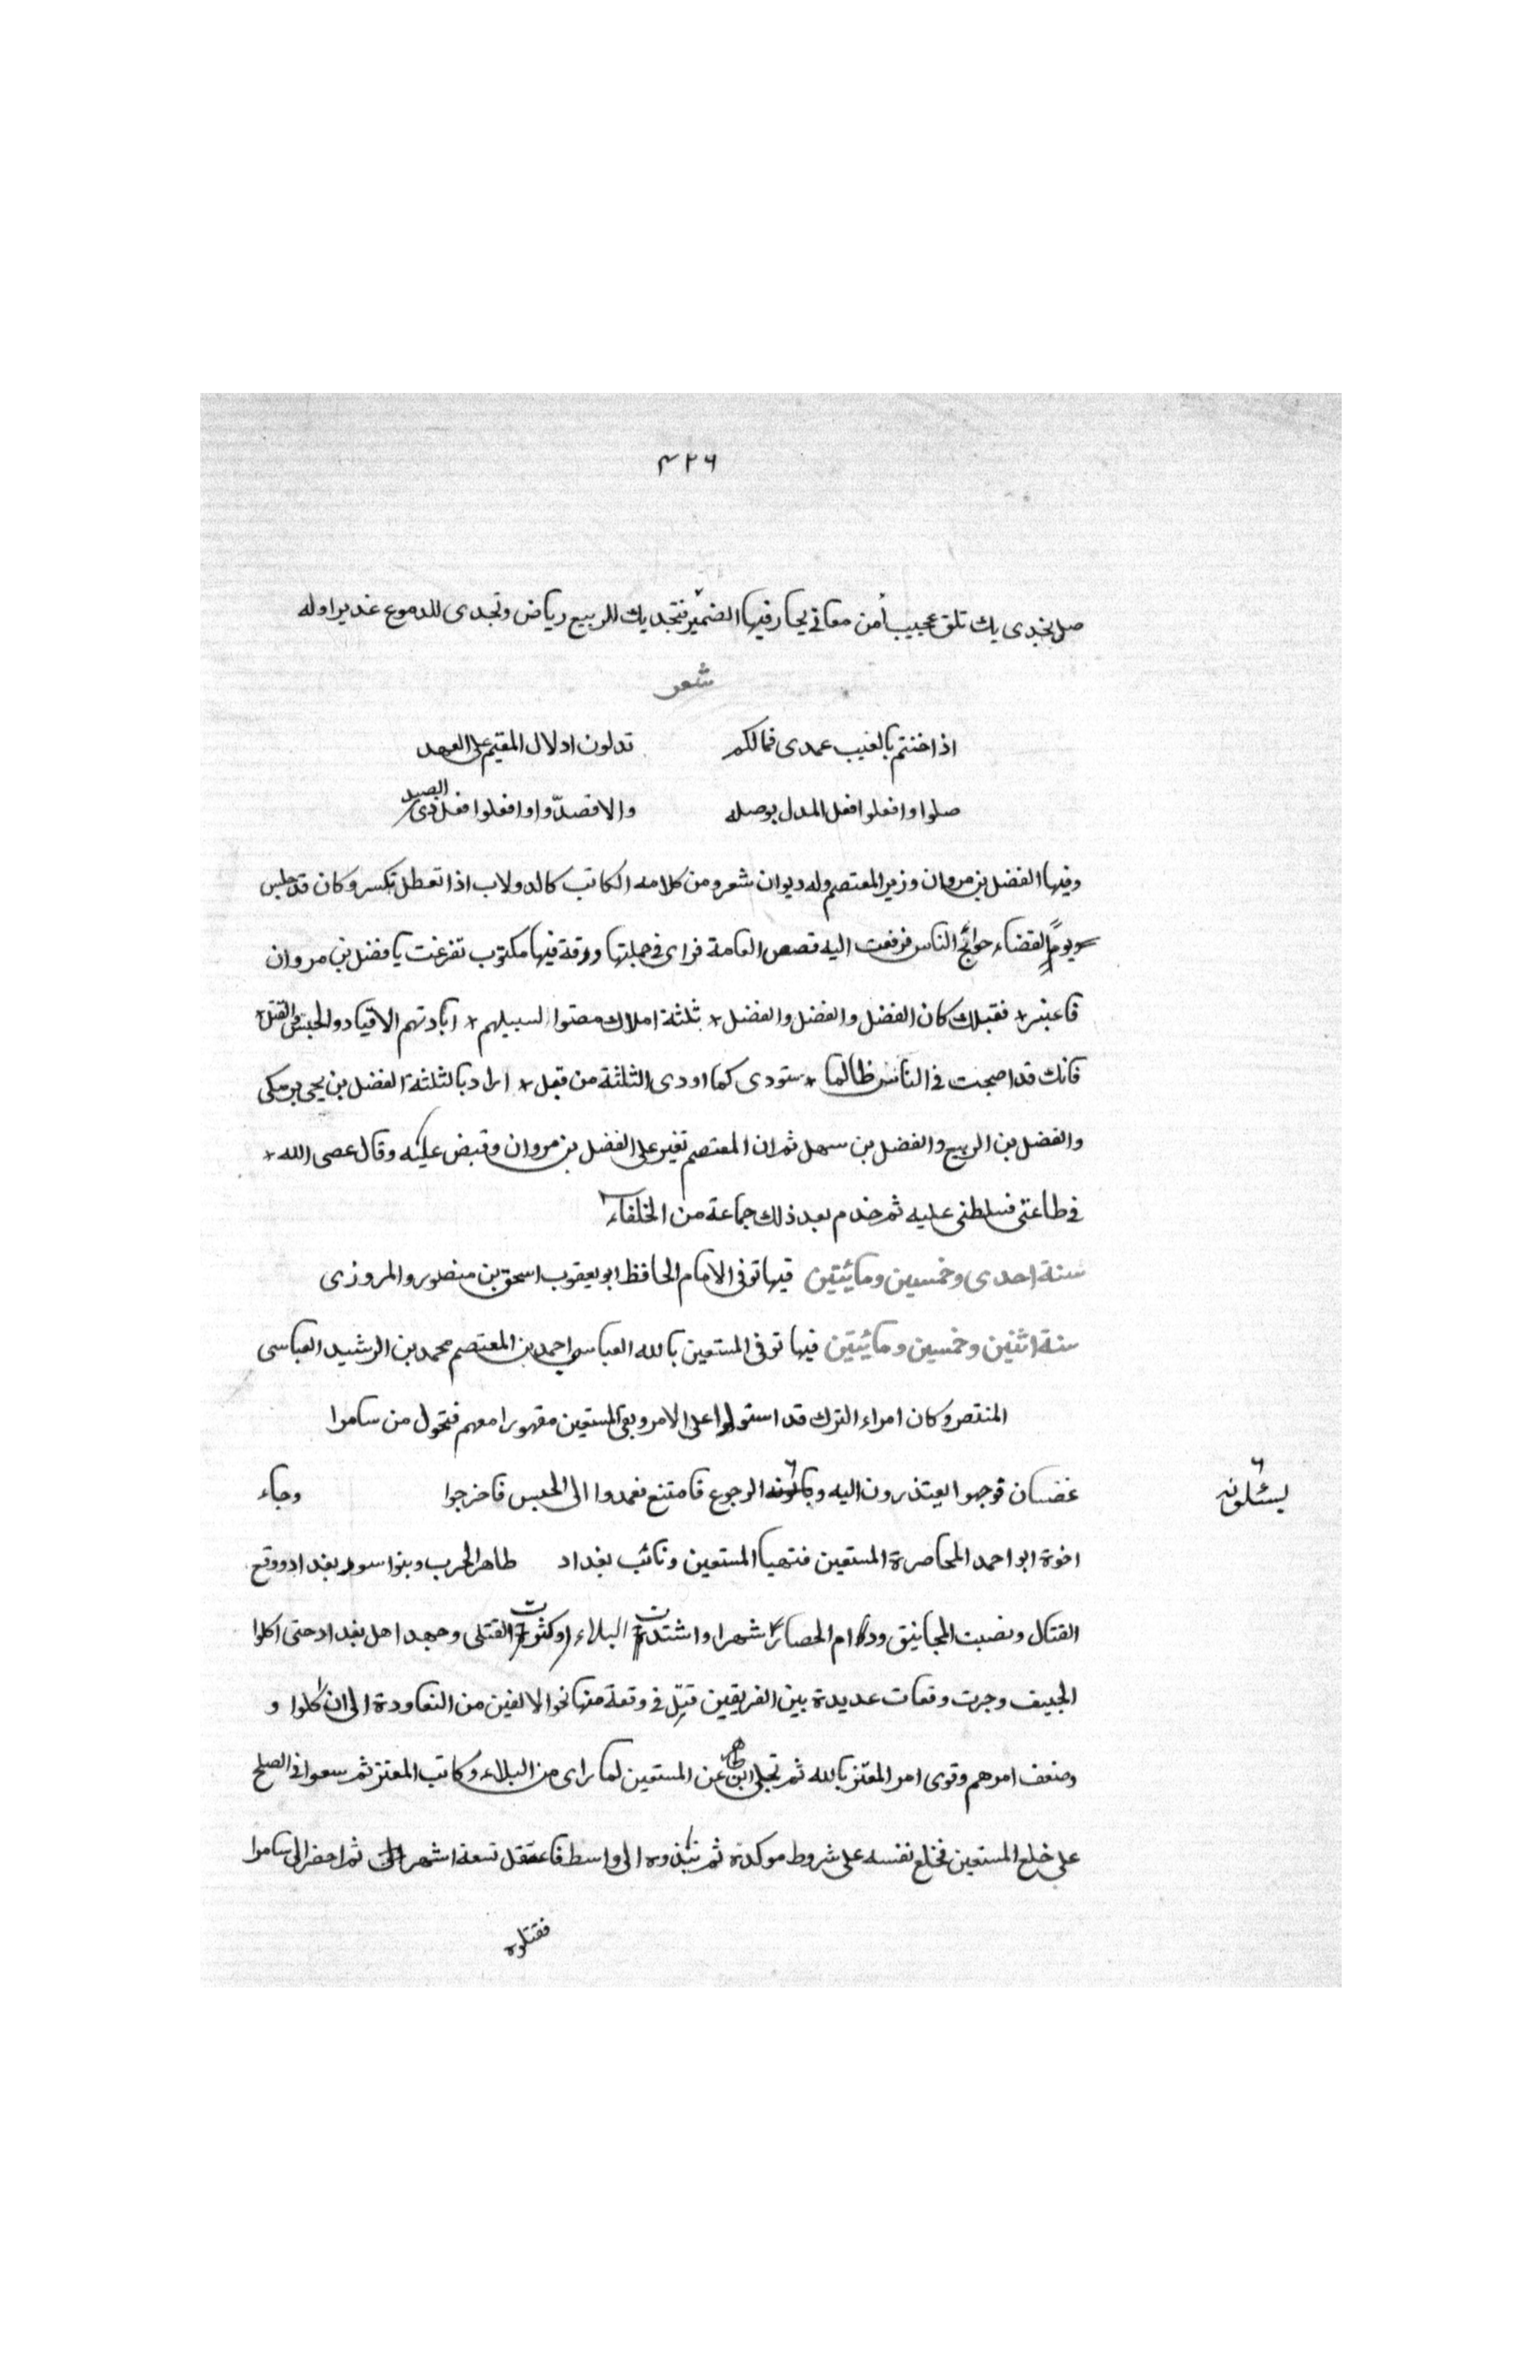 ٣٢٦
صل بخدى يك تلق عجيبا من معانى يحار فيها الضمير فبخديك للربيع رياض وتجدى للدموع غديرا وله
شعر
اذا خنتم بالغيب عهدى فمالكم تدلون ادلال المقيم على العهد
صلوا وافعلوا فعل المدل بوصله والا فصدّوا وافعلوا فعل ذى الصد
وفيها الفضل بن مروان وزير المعتصم وله ديوان شعر ومن كلامه الكاتب كالدولاب اذا تعطل تكسر وكان قد جلس
يوما لقضاء حوائج الناس فرفعت اليه قصص العامة فراى فى جملتها ورقة فيها مكتوب تفرغت يا فضل بن مروان
فاعتبر * فقبلك كان الفضل والفضل والفضل * ثلثة املاك مضوا لسبيلهم * ابادتهم الاقياد والحبس والقتل *
فانك قد اصبحت فى الناس ظالما * ستودى كما اودى الثلثة من قبل * اراد بالثلثة الفضل بن يحيى برمكى
والفضل بن الربيع والفضل بن سهل ثم ان المعتصم تغير على الفضل بن مروان وقبض عليه وقال عصى الله *
فى طاعتى فسلطنى عليه ثم خدم بعد ذلك جماعة من الخلفاء
سنة احدى وخمسين ومائيتين فيها توفى الامام الحافظ ابو يعقوب اسحق بن منصور والمروزى
سنة اثنين وخمسين ومائيتين فيها توفى المستعين بالله العباسى احمد بن المعتصم محمد بن الرشيد العباسى
المنتصر وكان امراء الترك قد استولوا على الامر وبقى المستعين مقهورا معهم فتحول من سامرا
غضبان فوجهوا يعتذرون اليه و الرجوع فامتنع فعمدوا الى الحبس فاخرجوا وجاء
يسئلونه
اخوة ابو احمد المحاصرة المستعين فتهيا المستعين ونائب بغداد طاهر الحرب وبنوا سور بغداد ووقع
القتال ونصبت المجانيق ودام الحصار شهرا واشتدت البلاء وكثرت القتلى وجهد اهل بغداد حتى اكلوا
الجيف وجرت وقعات عديدة بين الفريقين قتل فى وقعة منها نحو الالفين من البغاددة الى ان كلوا و
وضعف امرهم وقوى امر المعتز بالله ثم تخلى ابن طاهر عن المستعين لما راى من البلاء وكاتب المعتز ثم سعوا فى الصلح
على خلع المستعين فخلع نفسه على شروط موكدة ثم نفذوه الى واسط فاعتقل تسعة اشهر ثم احضر الى سامرا
فقتلوه